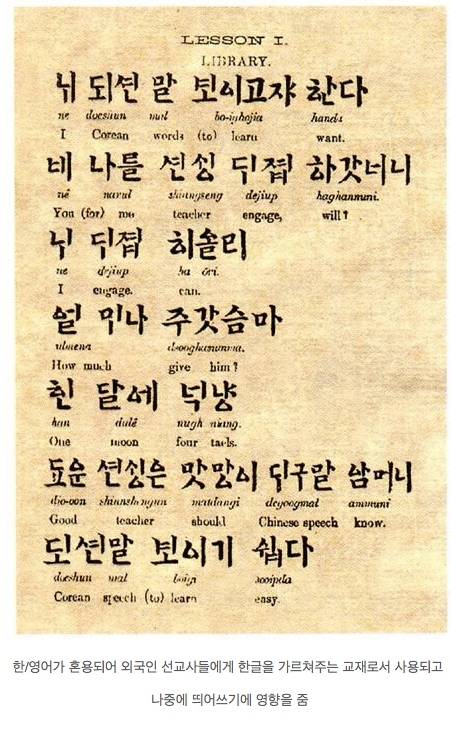 LESSON I.
LIBRARY.
뉘 되션 말 보이고쟈 한다
ne doeshun mal bo-ighojia handa
I Corean words (to) learn want.
네 나를 션싱 뒤졉 하갓너니
nê narul shiungseng dejiup haghannuni.
You (for) me teacher engage, will?
뉘 뒤졉 히올리
ne dejiup ha ôri.
I engage. can.
얼 미나 주갓슴마
ulmena dsooghanunma.
How much give him?
한 달에 넉냥
han dalê nugh niang.
One moon four taels.
됴운 션싱은 맛망이 뒤구말 암머니
dio-oon matdangi degoogmal ammuni
Good teacher should Chinese speech know.
되션말 보이기 쉽다
doeshun mal boigi sooipda
Corean speech (to) learn easy.
한/영어가 혼용되어 외국인 선교사들에게 한글을 가르쳐주는 교재로서 사용되고
나중에 띄어쓰기에 영향을 줌